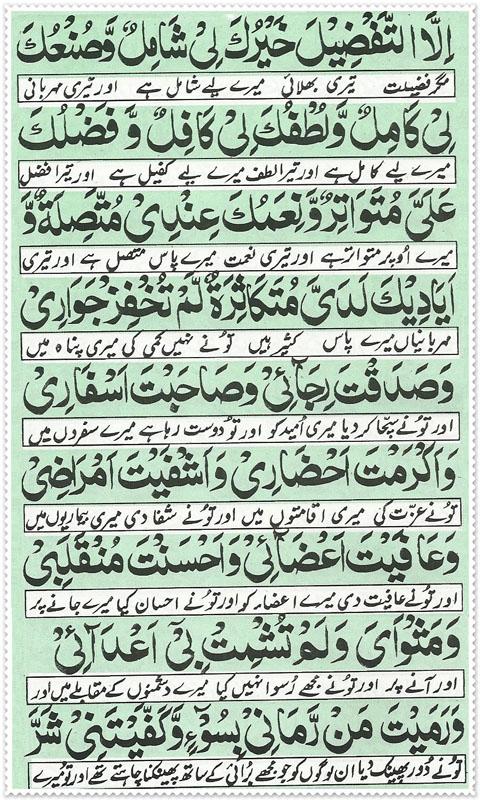 اِلَّا التَّفْضِيْلَ خَيْرُكَ لِيْ شَامِلٌ وَّصُنْعُكَ
مگر فضیلت تیری بھلائی میرے لیے شامل ہے اور تیری مہربانی
لِيْ كَامِلٌ وَّلُطْفُكَ لِيْ كَافِلٌ وَّفَضْلُكَ
میرے لیے کامل ہے اور تیرا لطف میرے لیے کفیل ہے اور تیرا فضل
عَلَيَّ مُتَوَاتِرٌ وَّنِعَمُكَ عِنْدِيْ مُتَّصِلَةٌ وَّ
میرے اُوپر متواتر ہے اور تیری نعمت میرے پاس متصل ہے اور تیری
اَيَادِيْكَ لَدَيَّ مُتَكَاثِرَةٌ لَّمْ تُخْفِرْ جَوَارِيْ
مہربانیاں میرے پاس کثیر ہیں تُونے نہیں کمی کی میری پناہ میں
وَصَدَقْتَ رِجَآئِيْ وَصَاحَبْتَ اَسْفَارِيْ
اور تُونے سچّا کر دیا میری اُمید کو اور تُو دوست رہا ہے میرے سفروں میں
وَاَكْرَمْتَ اَحْضَارِيْ وَاَشْفَيْتَ اَمْرَاضِيْ
تُونے عزّت کی میری اقامتوں میں اور تُونے شفا دی میری بیماریوں میں
وَعَافَيْتَ اَعْضَآئِيْ وَاَحْسَنْتَ مُنْقَلَبِيْ
اور تُونے عافیت دی میرے اعضاء کو اور تُونے احسان کیا میرے جانے پر
وَمَثْوَايَ وَلَمْ تُشْمِتْ بِيْ اَعْدَآئِيْ
اور آنے پر اور تُونے مجھے رُسوا نہیں کیا میرے دشمنوں کے مقابلے میں اور
وَرَمَيْتَ مَنْ رَّمَانِيْ بِسُوْٓءٍ وَّكَفَيْتَنِيْ شَرَّ
تُونے دُور پھینک دیا ان لوگوں کو جو مجھے بُرائی کے ساتھ پھینکنا چاہتے تھے اور تُو میرے